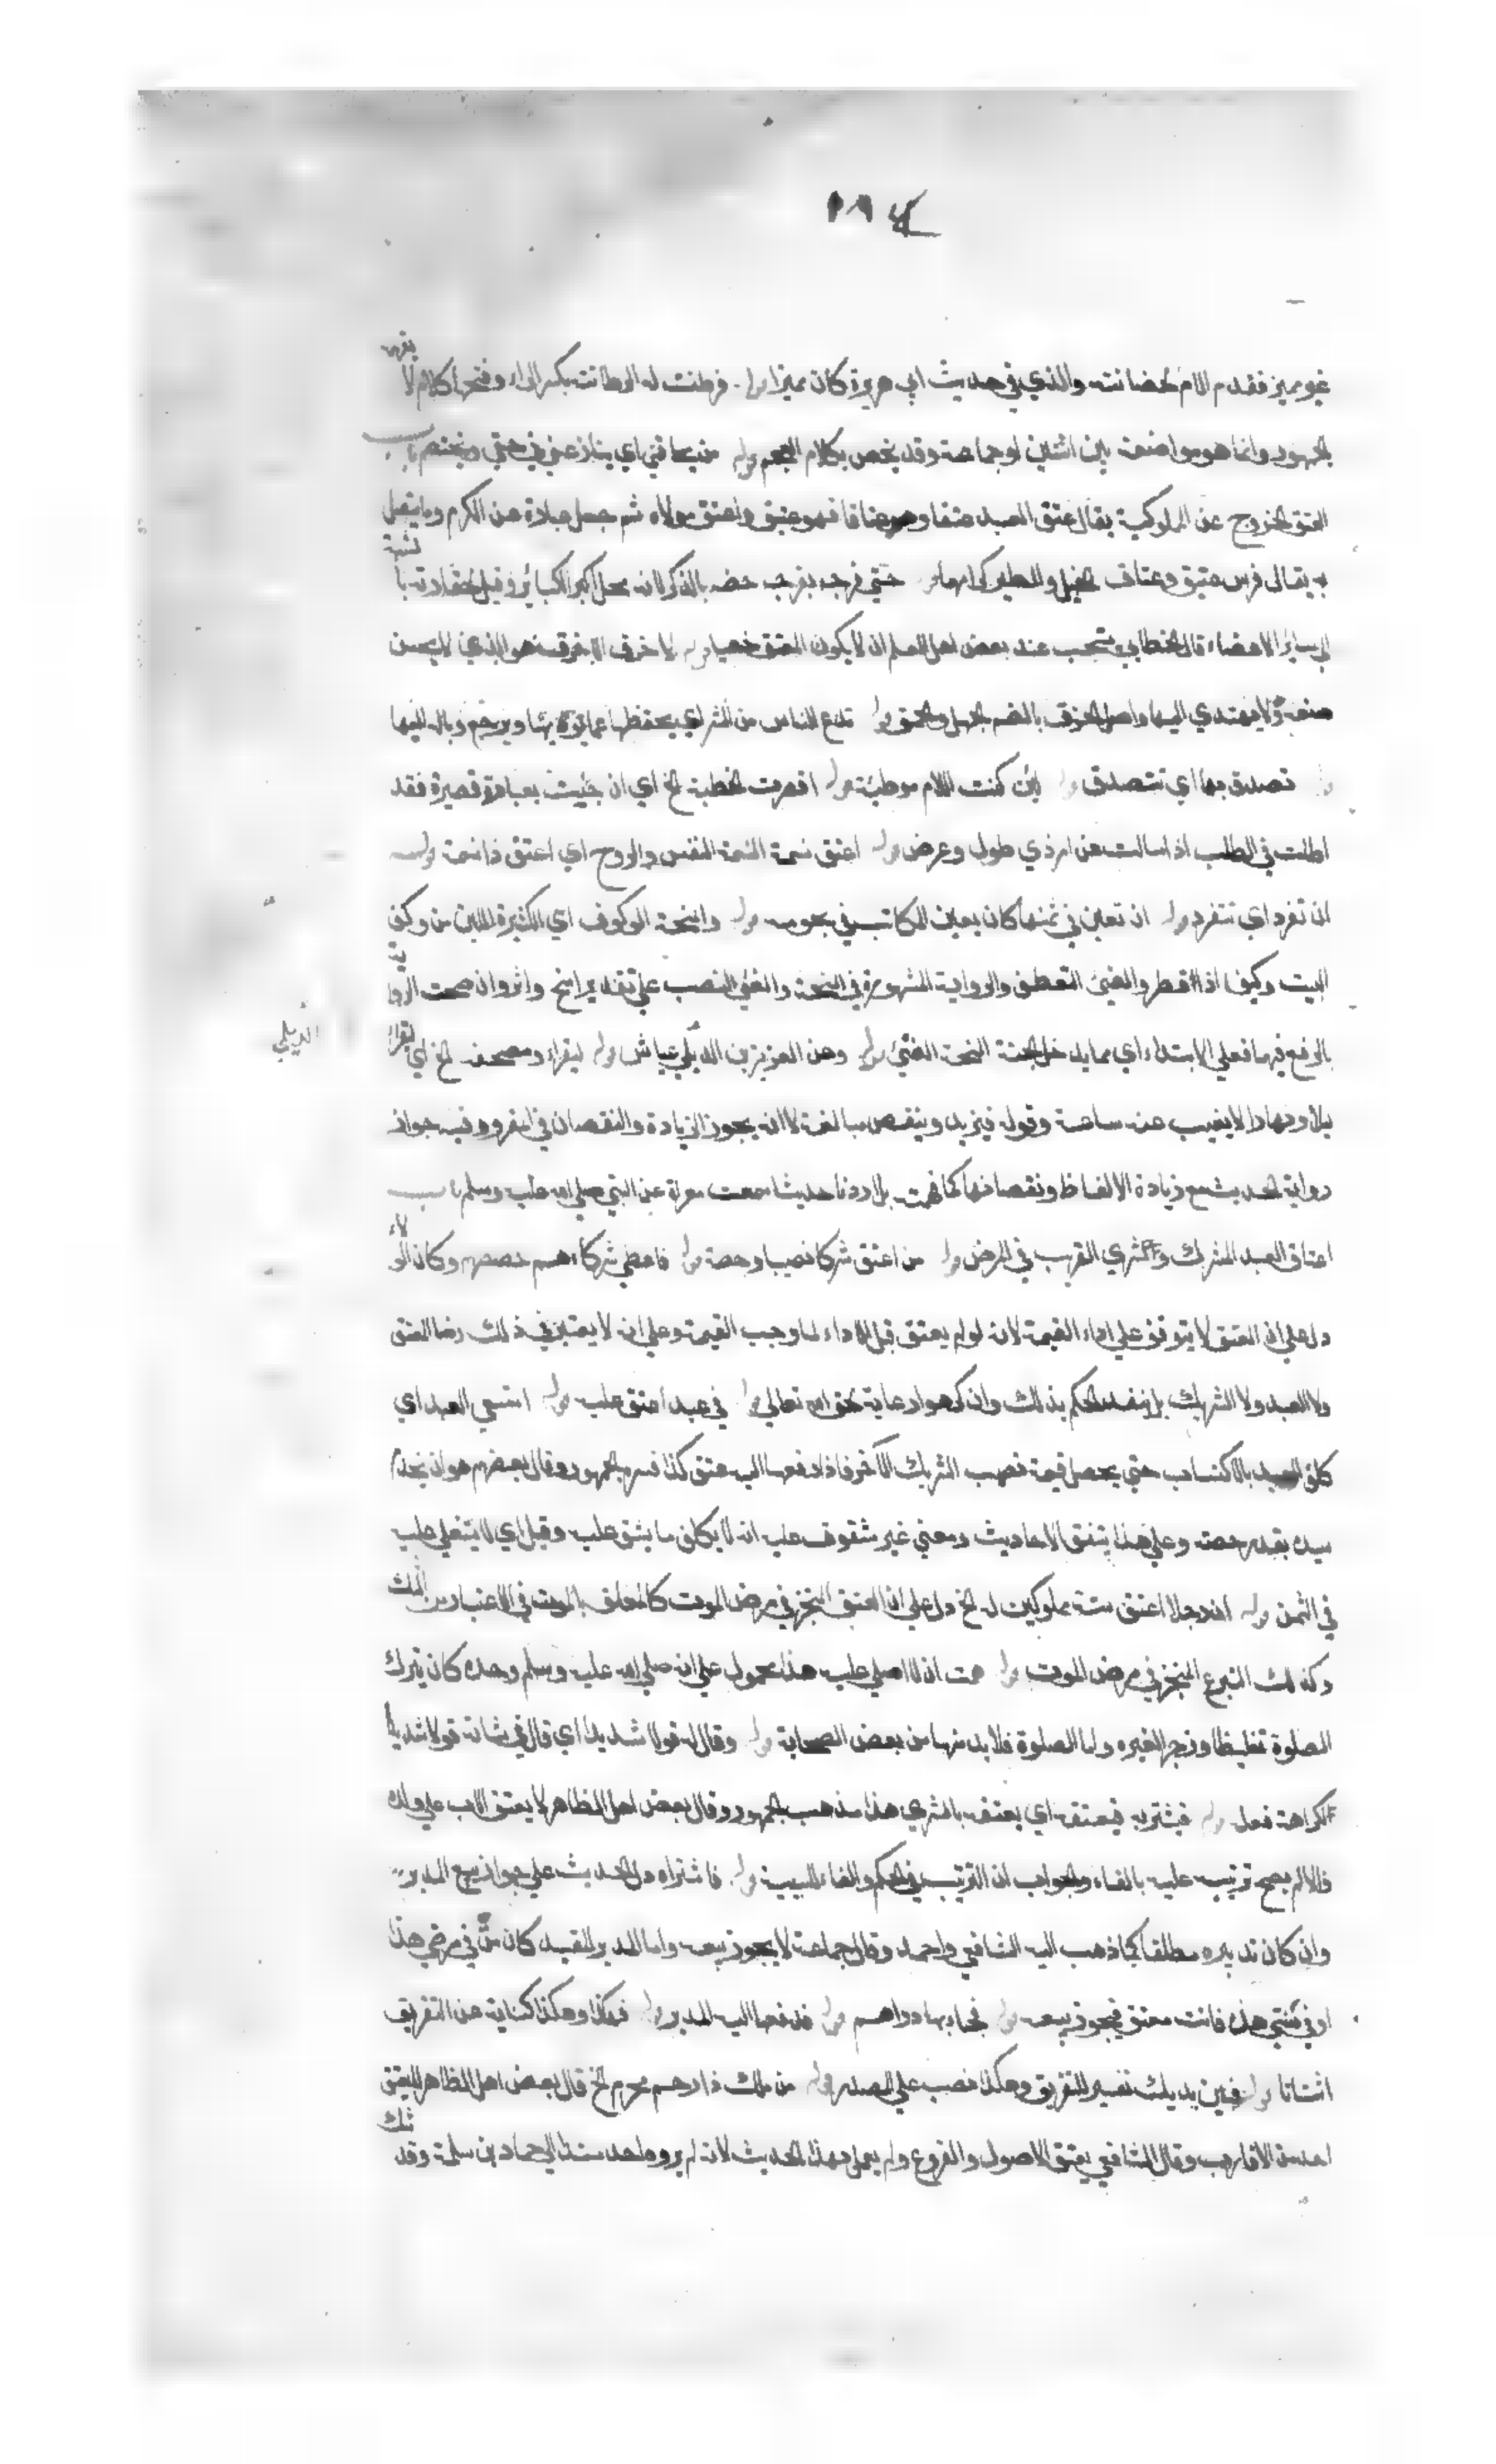 غير مميز فقدم الام لحضانته والذي في حديث ابي هريرة كان مميزا قوله فرطنت له الرطانة بكسر الراء وفتحها كلام لا يفهمه
الجمهور وانما هو مواضعة بين اثنين او جماعة وقد يخص بكلام العجم قوله من يحاقني اي ينازعني في حقي ويختصم باب
العتق الخروج عن المملوكية يقال عتق العبد عتقا وعتاقا فهو عتيق واعتق مولاه ثم جعل عبارة عن الكرم وما يتصل
به يقال فرس عتيق وعتاق الخيل والطير كرامها قوله حتى فرجه بفرجه خصه بالذكر لانه محل اكبر الكبائر وقيل لحقارته بالنسبة
الى سائر الاعضاء قال الخطابي يستحب عند بعض اهل العلم ان لا يكون المعتق خصيا قوله لاخرق الاخرق هو الذي لا يحسن
صنعة ولا يهتدي اليها واصل الخرق بالضم الجهل والحمق قوله تدع الناس من الشر اي يحفظها عما يؤذيها ويرجع وباله اليها
قوله تصدق بها اي تتصدق قوله لئن كنت اللام موطئة قوله اقصرت الخطبة الخ اي ان جئت بعبارة قصيرة فقد
اطلت في الطلب اذا سالت عن امر ذي طول وعرض قوله اعتق نسمة النسمة النفس والروح اي اعتق ذا نسمة قوله
ان تفرد اي تنفرد قوله ان تعين في ثمنها كان يعين المكاتب في نجومه قوله والمنحة الوكوف اي الكثيرة اللبن من وكف
البيت وكيفا اذا قطر والفيئ التعطف والرواية المشهورة في المنحة والفيئ النصب على تقدير امنح واثر وان صحت الرواية
بالرفع فيهما فعلى الابتداء اي مما يدخل الجنة المنحة الفيئ قوله وعن العزيز بن الديلي عياش قوله ليقراء ومصحفه الخ اي يقراء
ليلا ونهارا لا يغيب عنه ساعة وقوله فيزيد وينقص مبالغة لا انه يجوز الزيادة والنقصان في المقرو وفيه جواز
رواية الحديث مع زيادة الالفاظ ونقصانها كما فهمت بل اردنا حديثا سمعت قوله عن النبي صلى الله عليه وسلم باب
اعتاق العبد المشرك والشرى القريب في المرض قوله من اعتق شركا نصيبا وحصة قوله فاعطى شركاءهم حصصهم وكان الولاء
دل على ان العتق لا يتوقف على اداء القيمة لانه لو لم يعتق قبل الاداء لما وجب القيمة وعلى انه لا يعتبر في ذلك رضا المعتق
ولا العبد ولا الشريك بل ينفذ الحكم بذلك وان كرهوا رعاية لحق الله تعالى قوله في عبد اعتق عليه قوله استسعي العبد اي
كلف العبد بالاكتساب حتى يحصل قيمة نصيب الشريك الآخر فاذا دفعها اليه عتق كذا فسره الجمهور وقال بعضهم هو ان يخدم
سيده بقدر حصته وعلى هذا يتفق الاحاديث ومعنى غير مشقوق عليه انه لا يكلف ما يشق عليه وقيل اي لا يستغلى عليه
في الثمن قوله ان رجلا اعتق ستة مملوكين له الخ دل على ان العتق المنجز في مرض الموت كالمعلق بالموت في الاعتبار من الثلث
وكذلك التبرع المنجز في مرض الموت قوله همت ان لا اصلي عليه هذا محمول على انه صلى الله عليه وسلم وحده كان يترك
الصلوة تغليظا وزجرا لغيره واما الصلوة فلا بد منها من بعض الصحابة قوله وقال له قولا شديدا اي قال في شانه قولا شديدا
لكراهة فعله قوله فيشتريه فيعتقه اي يعتقه بالشرى هذا مذهب الجمهور وقال بعض اهل الظاهر لا يعتق الاب على ولده
والا لم يصح ترتيب عليه بالفاء والجواب ان الترتيب في الحكم والفاء للسببية قوله فاشتراه دل الحديث على جواز بيع المدبر
وان كان تدبيره مطلقا كما ذهب اليه الشافعي واحمد وقال جماعة لا يجوز بيعه واما المدبر المقيد كان مت في مرضي هذا
او في سنتي هذه فانت معتق فيجوز بيعه قوله فجاء بها دراهم قوله فدفعها اليه المدبر قوله فهكذا وهكذا كناية عن التفريق
اشتاتا قوله فبين يديك تفسير للتفريق وهكذا نصب على المصدر قوله من ملك ذا رحم محرم الخ قال بعض اهل الظاهر لا يعتق
احد من الاقارب وقال الشافعي يعتق الاصول والفروع ولم يعمل بهذا الحديث لانه لم يروه احد مسندا الا حماد بن سلمة وقد شك
الديلي